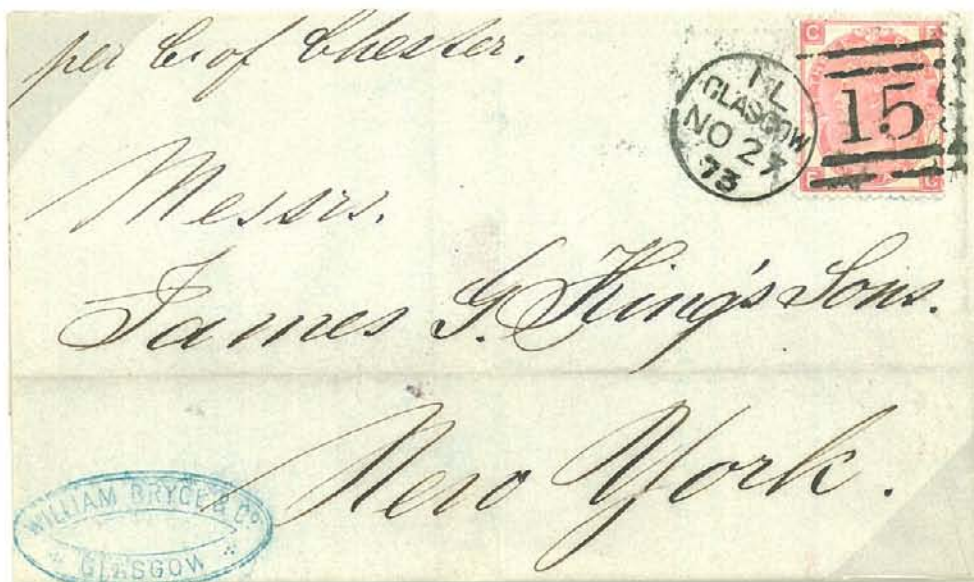 per C. of Chester.
1 L
GLASGOW
NO 27
73
15
C
F
Messrs.
James G. King's Sons.
New York.
WILLIAM BRYCE & Co
GLASGOW